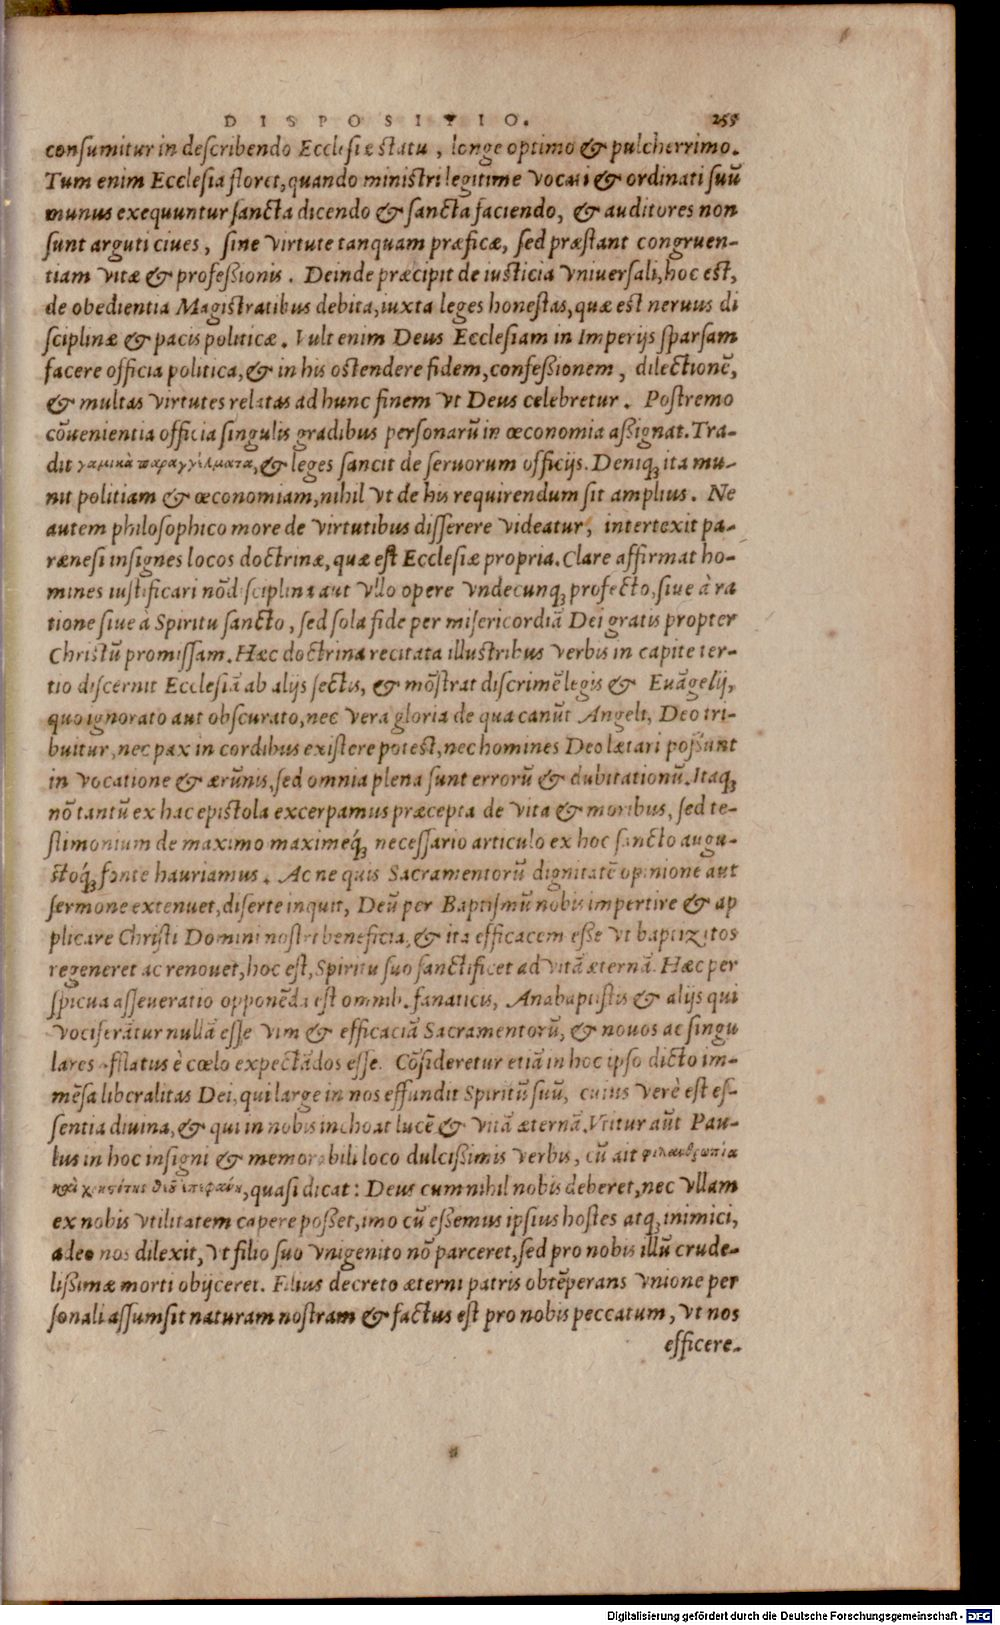 DISPOSITIO. 255
consumitur in describendo Ecclesiæ statu, longe optimo & pulcherrimo.
Tum enim Ecclesia floret, quando ministri legitime vocati & ordinati suū
munus exequuntur sancta dicendo & sancta faciendo, & auditores non
sunt arguti ciues, sine virtute tanquam præficæ, sed præstant congruen-
tiam vitæ & professionis. Deinde præcipit de iusticia vniuersali, hoc est,
de obedientia Magistratibus debita, iuxta leges honestas, quæ est neruus di
sciplinæ & pacis politicæ. Vult enim Deus Ecclesiam in Imperijs sparsam
facere officia politica, & in his ostendere fidem, confessionem, dilectionē,
& multas virtutes relatas ad hunc finem vt Deus celebretur. Postremo
cōuenientia officia singulis gradibus personarū in œconomia assignat. Tra-
dit γαμικὰ παραγγέλματα, & leges sancit de seruorum officijs. Deniq; ita mu-
nit politiam & œconomiam, nihil vt de his requirendum sit amplius. Ne
autem philosophico more de virtutibus disserere videatur, intertexit pa-
rænesi insignes locos doctrinæ, quæ est Ecclesiæ propria. Clare affirmat ho-
mines iustificari nō disciplina aut vllo opere vndecunq; profecto, siue à ra
tione siue à Spiritu sancto, sed sola fide per misericordiā Dei gratis propter
Christū promissam. Hæc doctrina recitata illustribus verbis in capite ter-
tio discernit Ecclesiā ab alijs sectis, & mōstrat discrimē legis & Euāgelij,
quo ignorato aut obscurato, nec vera gloria de qua canūt Angeli, Deo tri-
buitur, nec pax in cordibus existere potest, nec homines Deo lætari possunt
in vocatione & ærūnis, sed omnia plena sunt errorū & dubitationū. Itaq;
nō tantū ex hac epistola excerpamus præcepta de vita & moribus, sed te-
stimonium de maximo maximeq́; necessario articulo ex hoc sancto augu-
stoq́; fonte hauriamus. Ac ne quis Sacramentorū dignitatē opinione aut
sermone extenuet, diserte inquit, Deū per Baptismū nobis impertire & ap
plicare Christi Domini nostri beneficia, & ita efficacem esse vt baptizatos
regeneret ac renouet, hoc est, Spiritu suo sanctificet ad vitā æternā. Hæc per
spicua asseueratio opponēda est omnib. fanaticis, Anabaptistis & alijs qui
vociferātur nullā esse vim & efficaciā Sacramentorū, & nouos ac singu
lares afflatus è cœlo expectādos esse. Cōsideretur etiā in hoc ipso dicto im-
mēsa liberalitas Dei, qui large in nos effundit Spiritū suū, cuius verè est es-
sentia diuina, & qui in nobis inchoat lucē & vitā æternā. Vtitur aūt Pau-
lus in hoc insigni & memorabili loco dulcissimis verbis, cū ait φιλανθρωπία
καὶ χρηστότης θεοῦ ἐπεφάνη, quasi dicat: Deus cum nihil nobis deberet, nec vllam
ex nobis vtilitatem capere posset, imo cū essemus ipsius hostes atq; inimici,
adeo nos dilexit, vt filio suo vnigenito nō parceret, sed pro nobis illū crude-
lissimæ morti obijceret. Filius decreto æterni patris obtēperans vnione per
sonali assumsit naturam nostram & factus est pro nobis peccatum, vt nos
efficere-
Digitalisierung gefördert durch die Deutsche Forschungsgemeinschaft - DFG